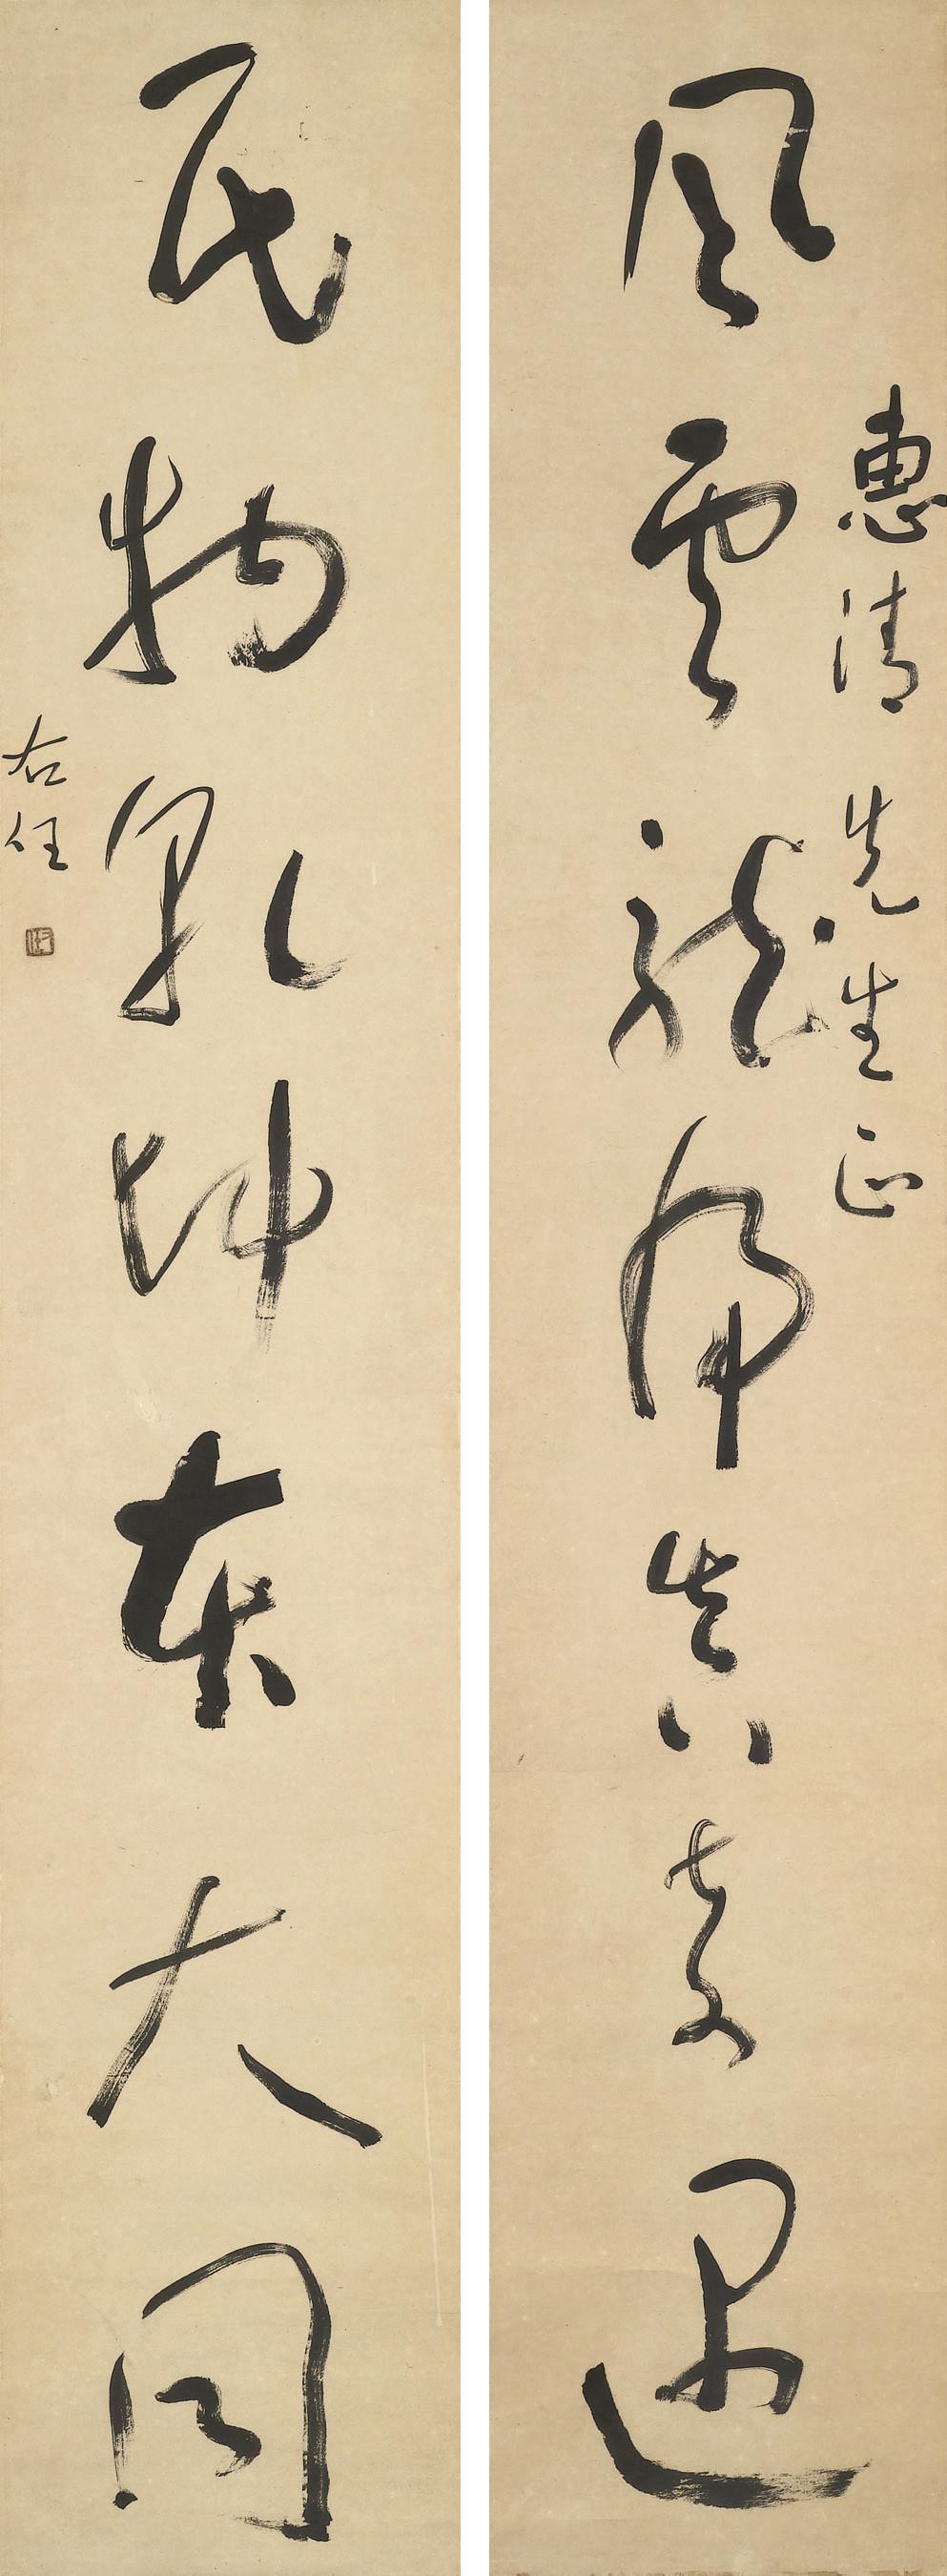 惠清先生正
風雲龍虎真奇遇
民物乾坤本大同
右任